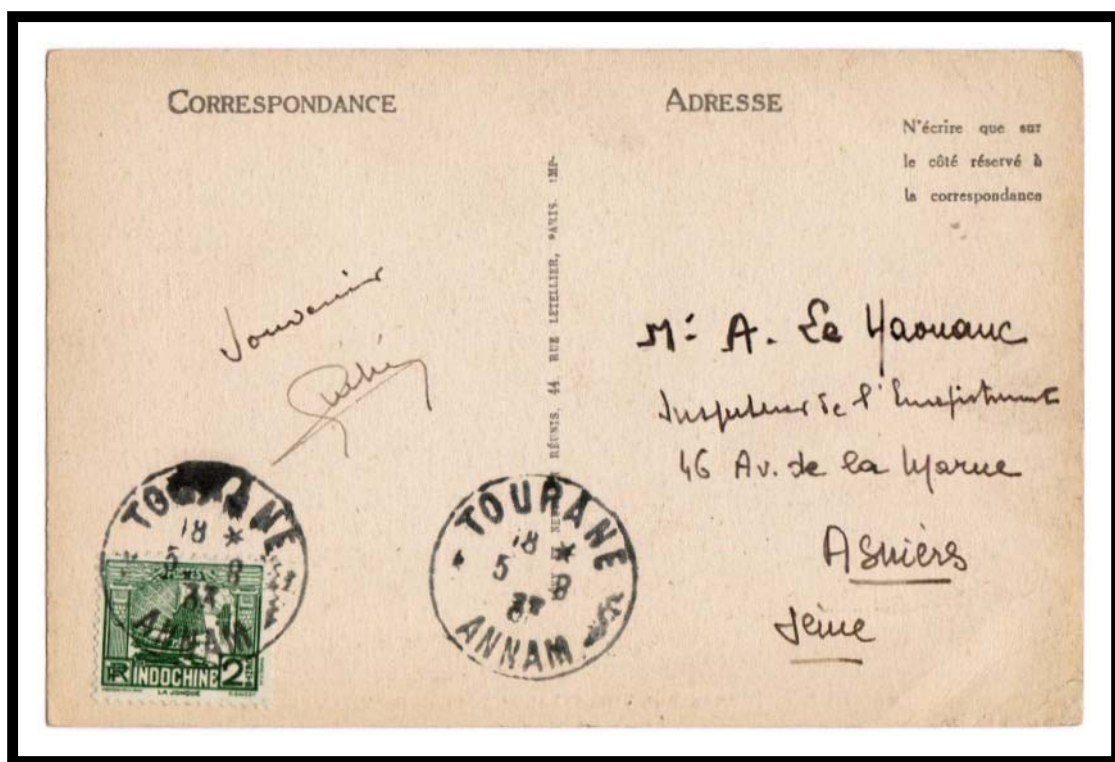 CORRESPONDANCE
ADRESSE
N'écrire que sur
le côté réservé à
la correspondance
RÉUNIS, 44, RUE LETELLIER, PARIS. IMP-
Souvenir
Mr A. Le Haouanc
Inspecteur de l'Enregistrement
46 Av. de la Marne
Asnières
Seine
TOURANE
18 *
5 8
33
ANNAM
TOURANE
18 *
5 8
33
ANNAM
POSTES
RF INDOCHINE 2
LA JONQUE